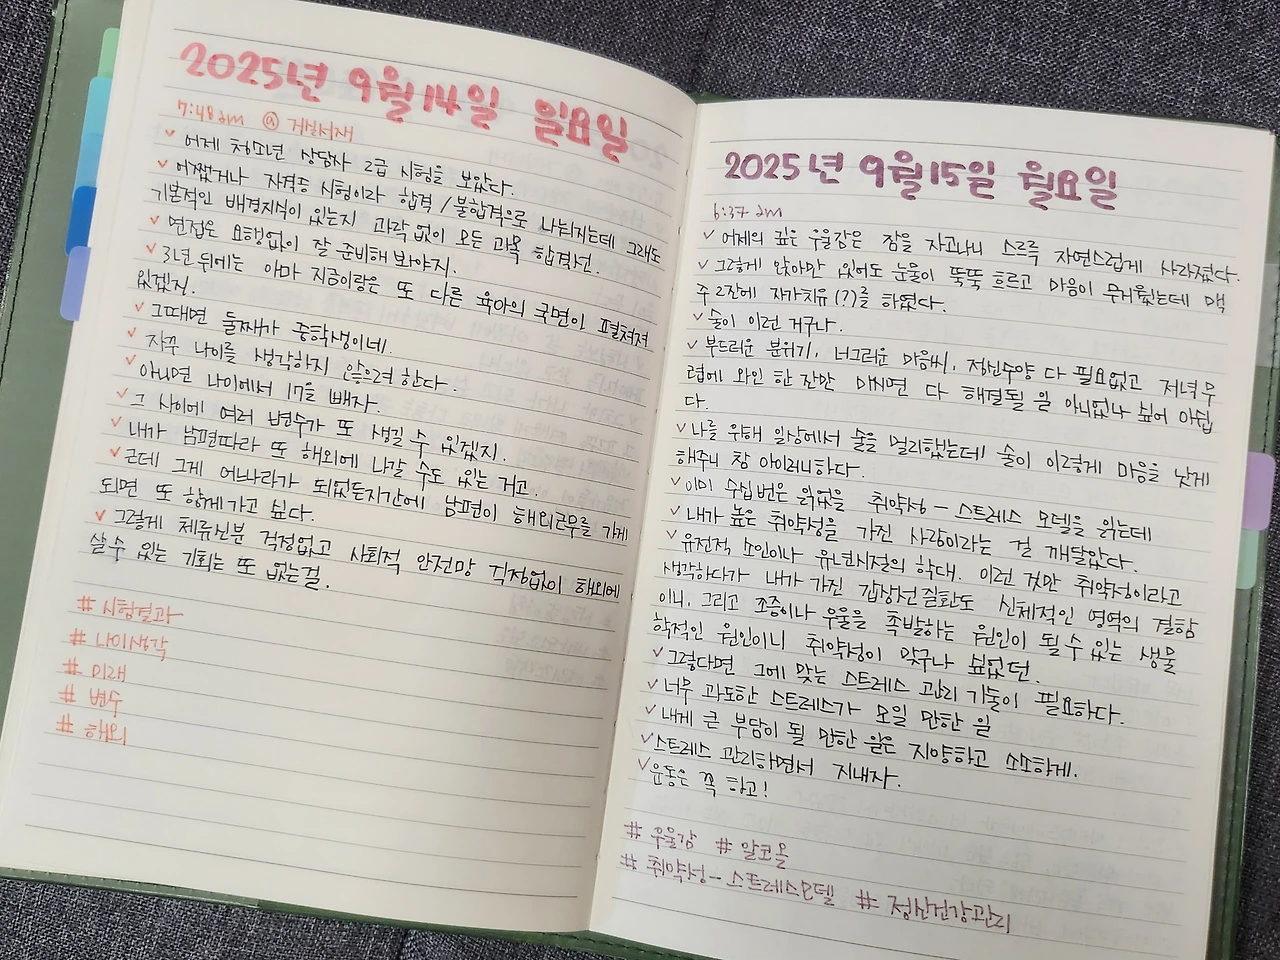 2025년 9월 14일 일요일
7:48am @ 거실서재
✓ 어제 청소년 상담사 2급 시험을 보았다.
✓ 어쨌거나 자격증 시험이라 합격/불합격으로 나뉘지는데 그래도
기본적인 배경지식이 있는지 과락없이 모든 과목 합격선.
✓ 면접은 요행없이 잘 준비해 봐야지.
✓ 3년 뒤에는 아마 지금이랑은 또 다른 육아의 국면이 펼쳐져
있겠지.
✓ 그때면 둘째가 중학생이네.
✓ 자꾸 나이를 생각하지 않으려 한다.
✓ 아니면 나이에서 17을 빼자.
✓ 그 사이에 여러 변수가 또 생길 수 있겠지.
✓ 내가 남편따라 또 해외에 나갈 수도 있는 거고.
✓ 근데 그게 어느나라가 되었든지간에 남편이 해외근무를 가게
되면 또 함께가고 싶다.
✓ 그렇게 체류신분 걱정없고 사회적 안전망 걱정없이 해외에
살 수 있는 기회는 또 없는걸.
# 시험결과
# 나이생각
# 미래
# 변수
# 해외
2025년 9월 15일 월요일
6:37 am
✓ 어제의 깊은 우울감은 잠을 자고나니 스르륵 자연스럽게 사라졌다.
✓ 그렇게 앉아만 있어도 눈물이 뚝뚝 흐르고 마음이 무거웠는데 맥
주 2잔에 자가치유(?)를 하였다.
✓ 술이 이런 거구나.
✓ 부드러운 분위기, 너그러운 마음씨, 정신수양 다 필요없고 저녁무
렵에 와인 한 잔만 마시면 다 해결될 일 아니었나 싶어 아쉽
다.
✓ 나를 위해 일상에서 술을 멀리했는데 술이 이렇게 마음을 낫게
해주니 참 아이러니하다.
✓ 이미 수십번은 읽었을 취약성-스트레스 모델을 읽는데
✓ 내가 높은 취약성을 가진 사람이라는 걸 깨달았다.
✓ 유전적 소인이나 유년시절의 학대. 이런 것만 취약성이라고
생각하다가 내가 가진 갑상선질환도 신체적인 영역의 결함
이니, 그리고 조증이나 우울을 촉발하는 원인이 될 수 있는 생물
학적인 원인이니 취약성이 맞구나 싶었던.
✓ 그렇다면 그에 맞는 스트레스 관리 기술이 필요하다.
✓ 너무 과도한 스트레스가 모일 만한 일
✓ 내게 큰 부담이 될 만한 일은 지양하고 소소하게.
✓ 스트레스 관리하면서 지내자.
✓ 운동은 꼭 하고!
# 우울감 # 알코올
# 취약성-스트레스모델 # 정신건강관리